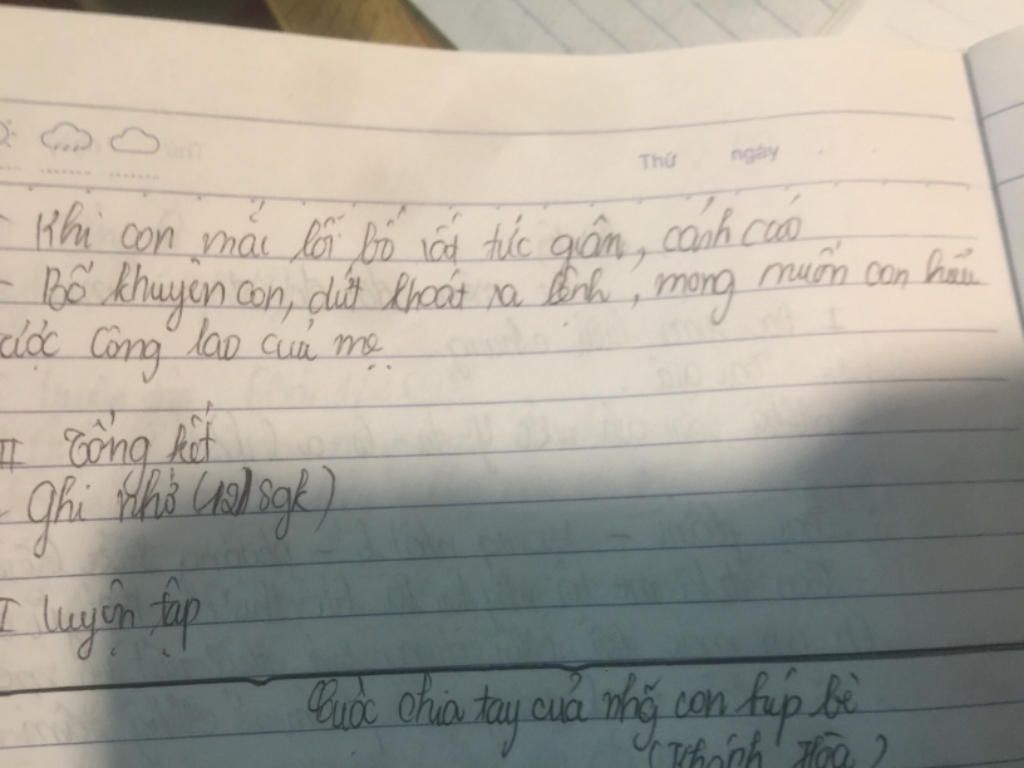 Thứ ngày
- Khi con mắc lỗi bố rất tức giân, cảnh cáo
- Bố khuyên con, dứt khoát ra lệnh, mong muốn con hiểu
được công lao của mẹ
II Tổng kết
- Ghi nhớ (12/sgk)
I luyện tập
Cuộc chia tay của nhg̃ con búp bê
(Khánh Hoài)